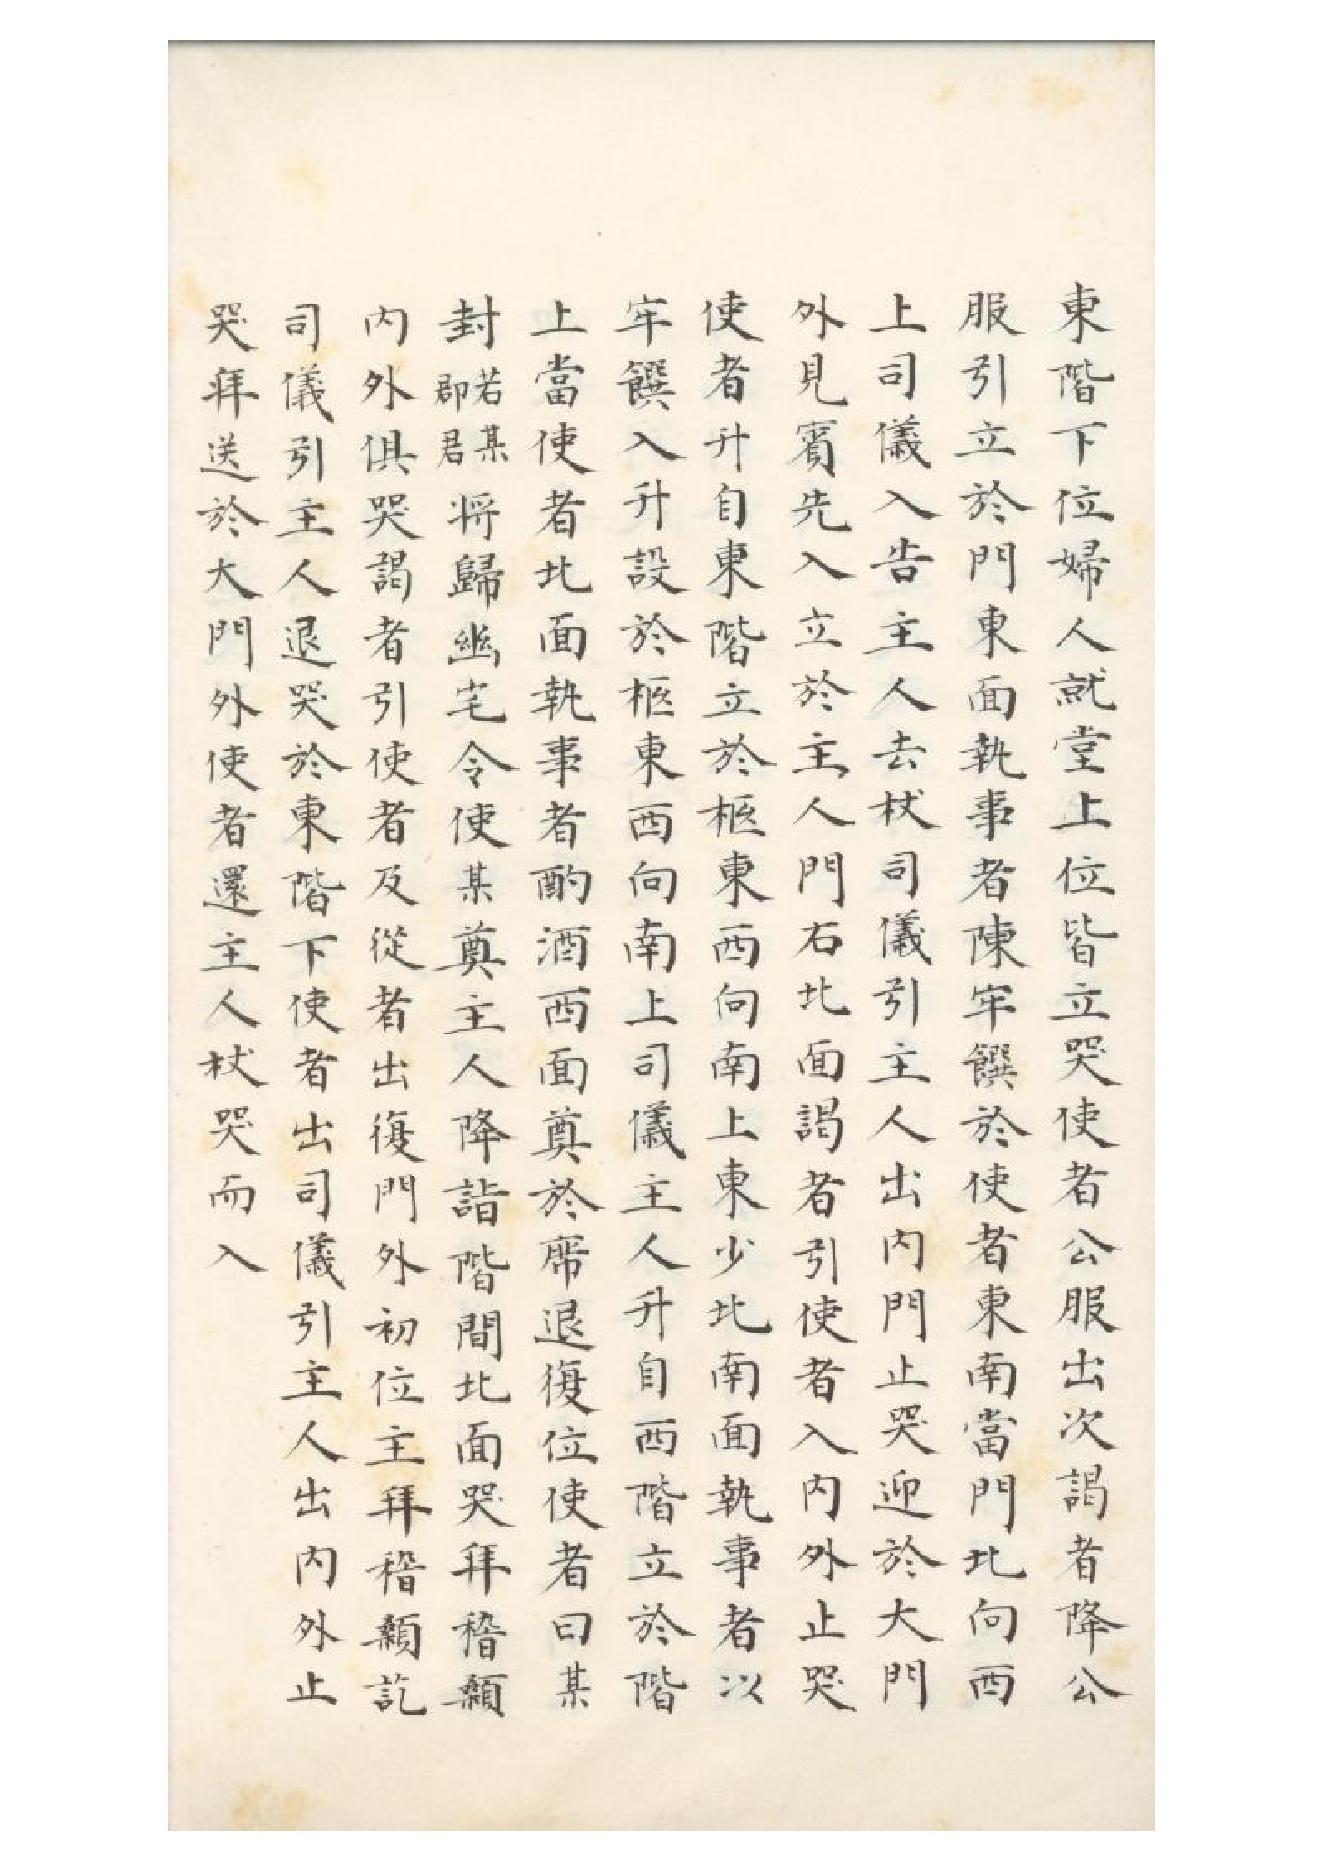 東階下位婦人就堂上位皆立哭使者公服出次謁者降公
服引立於門東面執事者陳牢饌於使者東南當門北向西
上司儀入告主人去杖司儀引主人出內門止哭迎於大門
外見賓先入立於主人門右北面謁者引使者入內外止哭
使者升自東階立於柩東西向南上東少北南面執事者以
牢饌入升設於柩東西向南上司儀主人升自西階立於階
上當使者北面執事者酌酒西面奠於席退復位使者曰某
封若某郡君將歸幽宅令使某奠主人降詣階間北面哭拜稽顙
內外俱哭謁者引使者及從者出復門外初位主拜稽顙訖
司儀引主人退哭於東階下使者出司儀引主人出內外止
哭拜送於大門外使者還主人杖哭而入